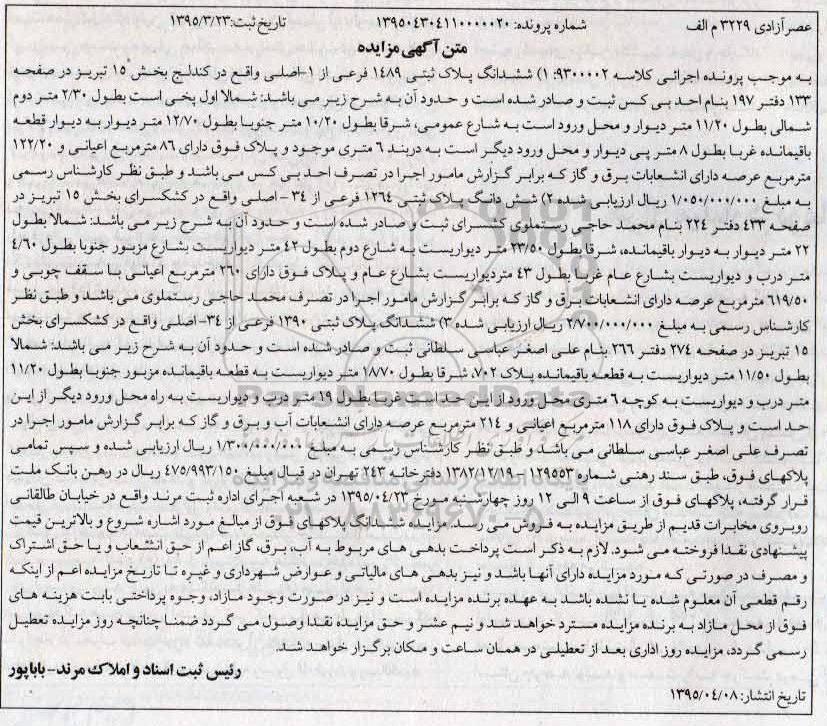 عصر آزادی ۳۲۲۹ م الف شماره پرونده: ۱۳۹۵۰۴۳۰۴۱۱۰۰۰۰۰۲۰ تاریخ ثبت: ۱۳۹۵/۳/۲۳
متن آگهی مزایده
به موجب پرونده اجرائی کلاسه ۹۳۰۰۰۰۲: ۱) ششدانگ پلاک ثبتی ۱۴۸۹ فرعی از ۱-اصلی واقع در کندلج بخش ۱۵ تبریز در صفحه
۱۳۳ دفتر ۱۹۷ بنام احد بی کس ثبت و صادر شده است و حدود آن به شرح زیر می باشد: شمالا اول پخی است بطول ۲/۳۰ متر دوم
شمالی بطول ۱۱/۲۰ متر دیوار و محل ورود است به شارع عمومی، شرقا بطول ۱۰/۲۰ متر جنوبا بطول ۱۲/۷۰ متر دیوار به دیوار قطعه
باقیمانده غربا بطول ۸ متر پی دیوار و محل ورود دیگر است به دربند ۶ متری موجود و پلاک فوق دارای ۸۶ مترمربع اعیانی و ۱۲۲/۲۰
مترمربع عرصه دارای انشعابات برق و گاز که برابر گزارش مامور اجرا در تصرف احد بی کس می باشد و طبق نظر کارشناس رسمی
به مبلغ ۱/۰۵۰/۰۰۰/۰۰۰ ریال ارزیابی شده ۲) شش دانگ پلاک ثبتی ۱۲۶۴ فرعی از ۳۴ - اصلی واقع در کشکسرای بخش ۱۵ تبریز در
صفحه ۴۳۳ دفتر ۲۲۴ بنام محمد حاجی رستملوی کشسرای ثبت و صادر شده است و حدود آن به شرح زیر می باشد: شمالا بطول
۲۲ متر دیوار به دیوار باقیمانده، شرقا بطول ۲۳/۵۰ متر دیواریست به شارع دوم بطول ۴۲ متر دیواریست بشارع مزبور جنوبا بطول ۴/۶۰
متر درب و دیواریست بشارع عام غربا بطول ۴۳ متردیواریست بشارع عام و پلاک فوق دارای ۲۶۰ مترمربع اعیانی با سقف چوبی و
۶۱۹/۵۰ مترمربع عرصه دارای انشعابات برق و گاز که برابر گزارش مامور اجرا در تصرف محمد حاجی رستملوی می باشد و طبق نظر
کارشناس رسمی به مبلغ ۲/۷۰۰/۰۰۰/۰۰۰ ریال ارزیابی شده ۳) ششدانگ پلاک ثبتی ۱۳۹۰ فرعی از ۳۴-اصلی واقع در کشکسرای بخش
۱۵ تبریز در صفحه ۲۷۴ دفتر ۲۶۶ بنام علی اصغر عباسی سلطانی ثبت و صادر شده است و حدود آن به شرح زیر می باشد: شمالا
بطول ۱۱/۵۰ متر دیواریست به قطعه باقیمانده پلاک ۷۰۲، شرقا بطول ۱۸۷۰ متر دیواریست به قطعه باقیمانده مزبور جنوبا بطول ۱۱/۲۰
متر درب و دیواریست به کوچه ۶ متری محل ورود از این حد است غربا بطول ۱۹ متر درب و دیواریست به راه محل ورود دیگر از این
حد است و پلاک فوق دارای ۱۱۸ مترمربع اعیانی و ۲۱۴ مترمربع عرصه دارای انشعابات آب و برق و گاز که برابر گزارش مامور اجرا در
تصرف علی اصغر عباسی سلطانی می باشد و طبق نظر کارشناس رسمی به مبلغ ۱/۳۰۰/۰۰۰/۰۰۰ ریال ارزیابی شده و سپس تمامی
پلاکهای فوق، طبق سند رهنی شماره ۱۲۹۵۵۳ - ۱۳۸۲/۱۲/۱۹ دفترخانه ۲۴۳ تهران در قبال مبلغ ۴۷۵/۹۹۳/۱۵۰ ریال در رهن بانک ملت
قرار گرفته، پلاکهای فوق از ساعت ۹ الی ۱۲ روز چهارشنبه مورخ ۱۳۹۵/۰۴/۲۳ در شعبه اجرای اداره ثبت مرند واقع در خیابان طالقانی
روبروی مخابرات قدیم از طریق مزایده به فروش می رسد. مزایده ششدانگ پلاکهای فوق از مبالغ مورد اشاره شروع و بالاترین قیمت
پیشنهادی نقدا فروخته می شود. لازم به ذکر است پرداخت بدهی های مربوط به آب، برق، گاز اعم از حق انشعاب و یا حق اشتراک
و مصرف در صورتی که مورد مزایده دارای آنها باشد و نیز بدهی های مالیاتی و عوارض شهرداری و غیره تا تاریخ مزایده اعم از اینکه
رقم قطعی آن معلوم شده یا نشده باشد به عهده برنده مزایده است و نیز در صورت وجود مازاد، وجوه پرداختی بابت هزینه های
فوق از محل مازاد به برنده مزایده مسترد خواهد شد و نیم عشر و حق مزایده نقدا وصول می گردد ضمنا چنانچه روز مزایده تعطیل
رسمی گردد، مزایده روز اداری بعد از تعطیلی در همان ساعت و مکان برگزار خواهد شد.
رئیس ثبت اسناد و املاک مرند - باباپور
تاریخ انتشار: ۱۳۹۵/۰۴/۰۸
ParsNamadData
۰۲۱-۸۸۳۴۹۶۷۰-۵